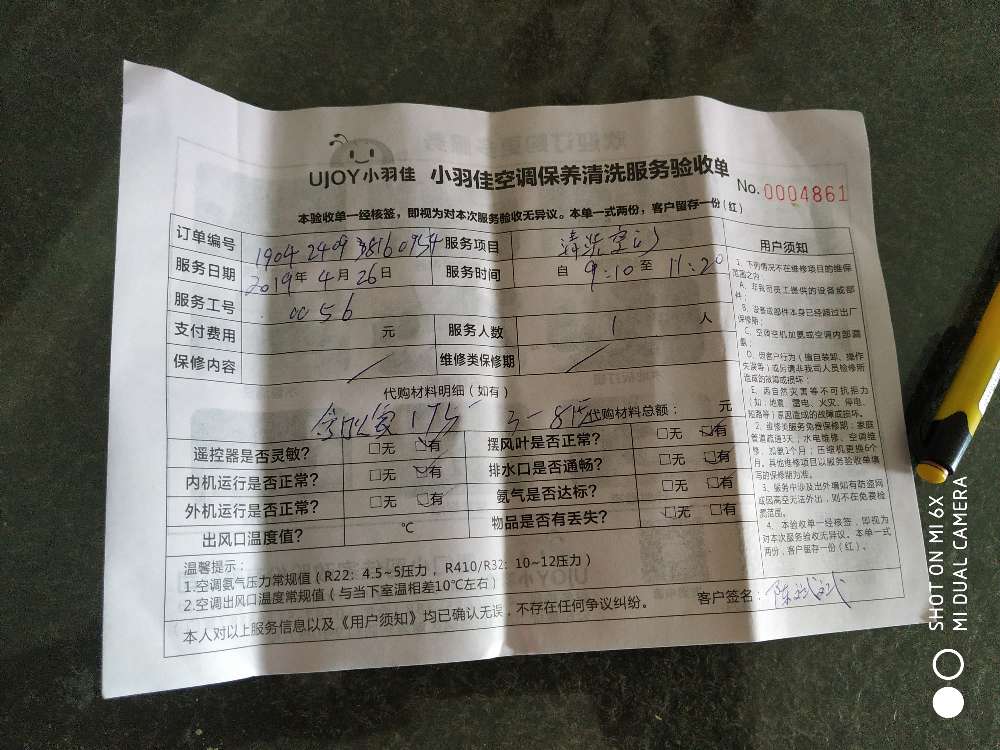 UJOY小羽佳 小羽佳空调保养清洗服务验收单
No. 0004861
本验收单一经核签，即视为对本次服务验收无异议。本单一式两份，客户留存一份（红）
订单编号 1904 2409 3816 服务项目 清洗空调
服务日期 2019年 4月 26日 服务时间 自 9:10 至 11:20
服务工号 0056
支付费用 元 服务人数 1 人
保修内容 / 维修类保修期 /
代购材料明细（如有）
代购材料总额： 元
遥控器是否灵敏? □无 □有 摆风叶是否正常? □无 □有
内机运行是否正常? □无 □有 排水口是否通畅? □无 □有
外机运行是否正常? □无 □有 氨气是否达标? □无 □有
出风口温度值? ℃ 物品是否有丢失? □无 □有
温馨提示：
1.空调氨气压力常规值（R22：4.5~5压力， R410/R32：10~12压力）
2.空调出风口温度常规值（与当下室温相差10℃左右）
本人对以上服务信息以及《用户须知》均已确认无误，不存在任何争议纠纷。
客户签名：
用户须知
1、下列情况不在维修项目的维保
范围之内：
A、非我司员工提供的设备或部
件；
B、设备或部件本身已经超过出厂
保修期；
C、空调空机加氨或空调内部漏
氨；
D、因客户行为（擅自装卸、操作
失误等）或另请非我司人员检修所
造成的故障或损坏；
E、因自然灾害等不可抗拒力
（如：地震、雷电、火灾、停电、
短路等）原因造成的故障或损坏。
2、维修类服务免费保修期：家庭
管道疏通3天，水电维修、空调维
修、加氨1个月；压缩机更换6个
月。其他维修项目以服务验收单填
写的保修期为准。
3、服务中涉及出外墙如有防盗网
或因高空无法外出，则不在免费检
质范围。
4、本验收单一经核签，即视为
对本次服务验收无异议。本单一式
两份，客户留存一份（红）。
SHOT ON MI 6X
MI DUAL CAMERA